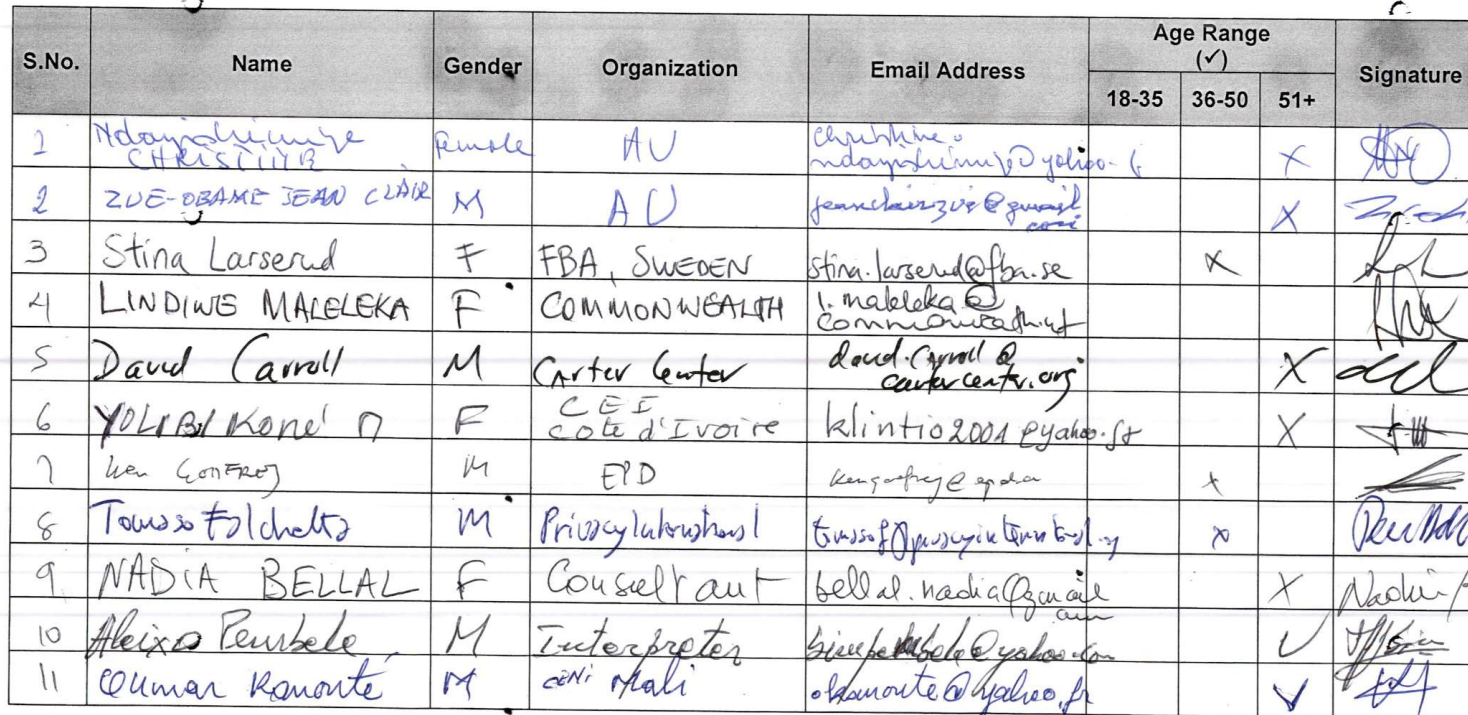 S.No. Name Gender Organization Email Address Age Range (✓) 18-35 36-50 51+ Signature
1 CHRISTINE Female AU christine. @yahoo. X
2 ZUE-OBAME JEAN CLAIR M AU jeanclairzue@gmail com X
3 Stina Larserud F FBA, SWEDEN stina.larserud@fba.se X
4 LINDIWE MALELEKA F COMMONWEALTH l.maleleka@ commonwealth.int
5 David Carroll M Carter Center david.carroll@ cartercenter.org X
6 YOLIBI Koné F CEI Cote d'Ivoire klintio2001@yahoo.fr X
7 Ken GODFREY M EPD X
8 M Privacy International X
9 NADIA BELLAL F Consultant bellal.nadia@gmail com X
10 Aleixo Pembele M Interpreter ✓
11 Oumar Kanouté M CENI Mali okanoute@yahoo.fr ✓